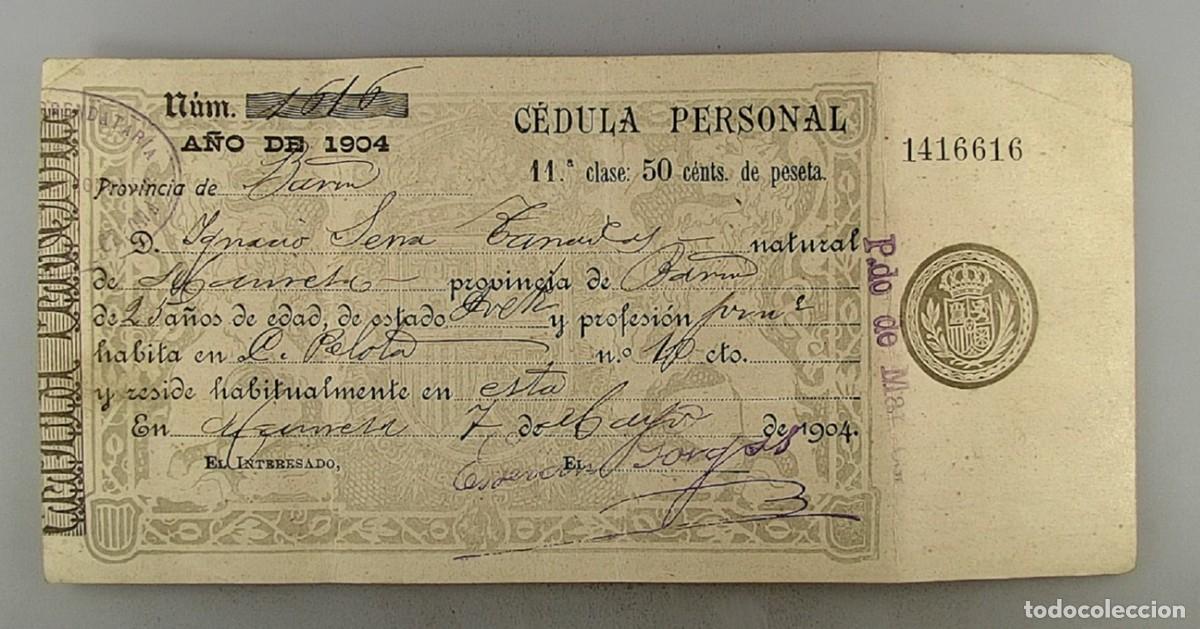 Núm. 1616
AÑO DE 1904
Provincia de Barna
CÉDULA PERSONAL
11.ª clase: 50 cénts. de peseta.
1416616
D. Ignacio Serra natural
de Manresa provincia de Barna
de 25 años de edad, de estado y profesión
habita en C. Pelota n.º 10 cto.
y reside habitualmente en esta
En Manresa 7 de Mayo de 1904.
EL INTERESADO, EL
P.do de
ARRENDATARIA
todocoleccion